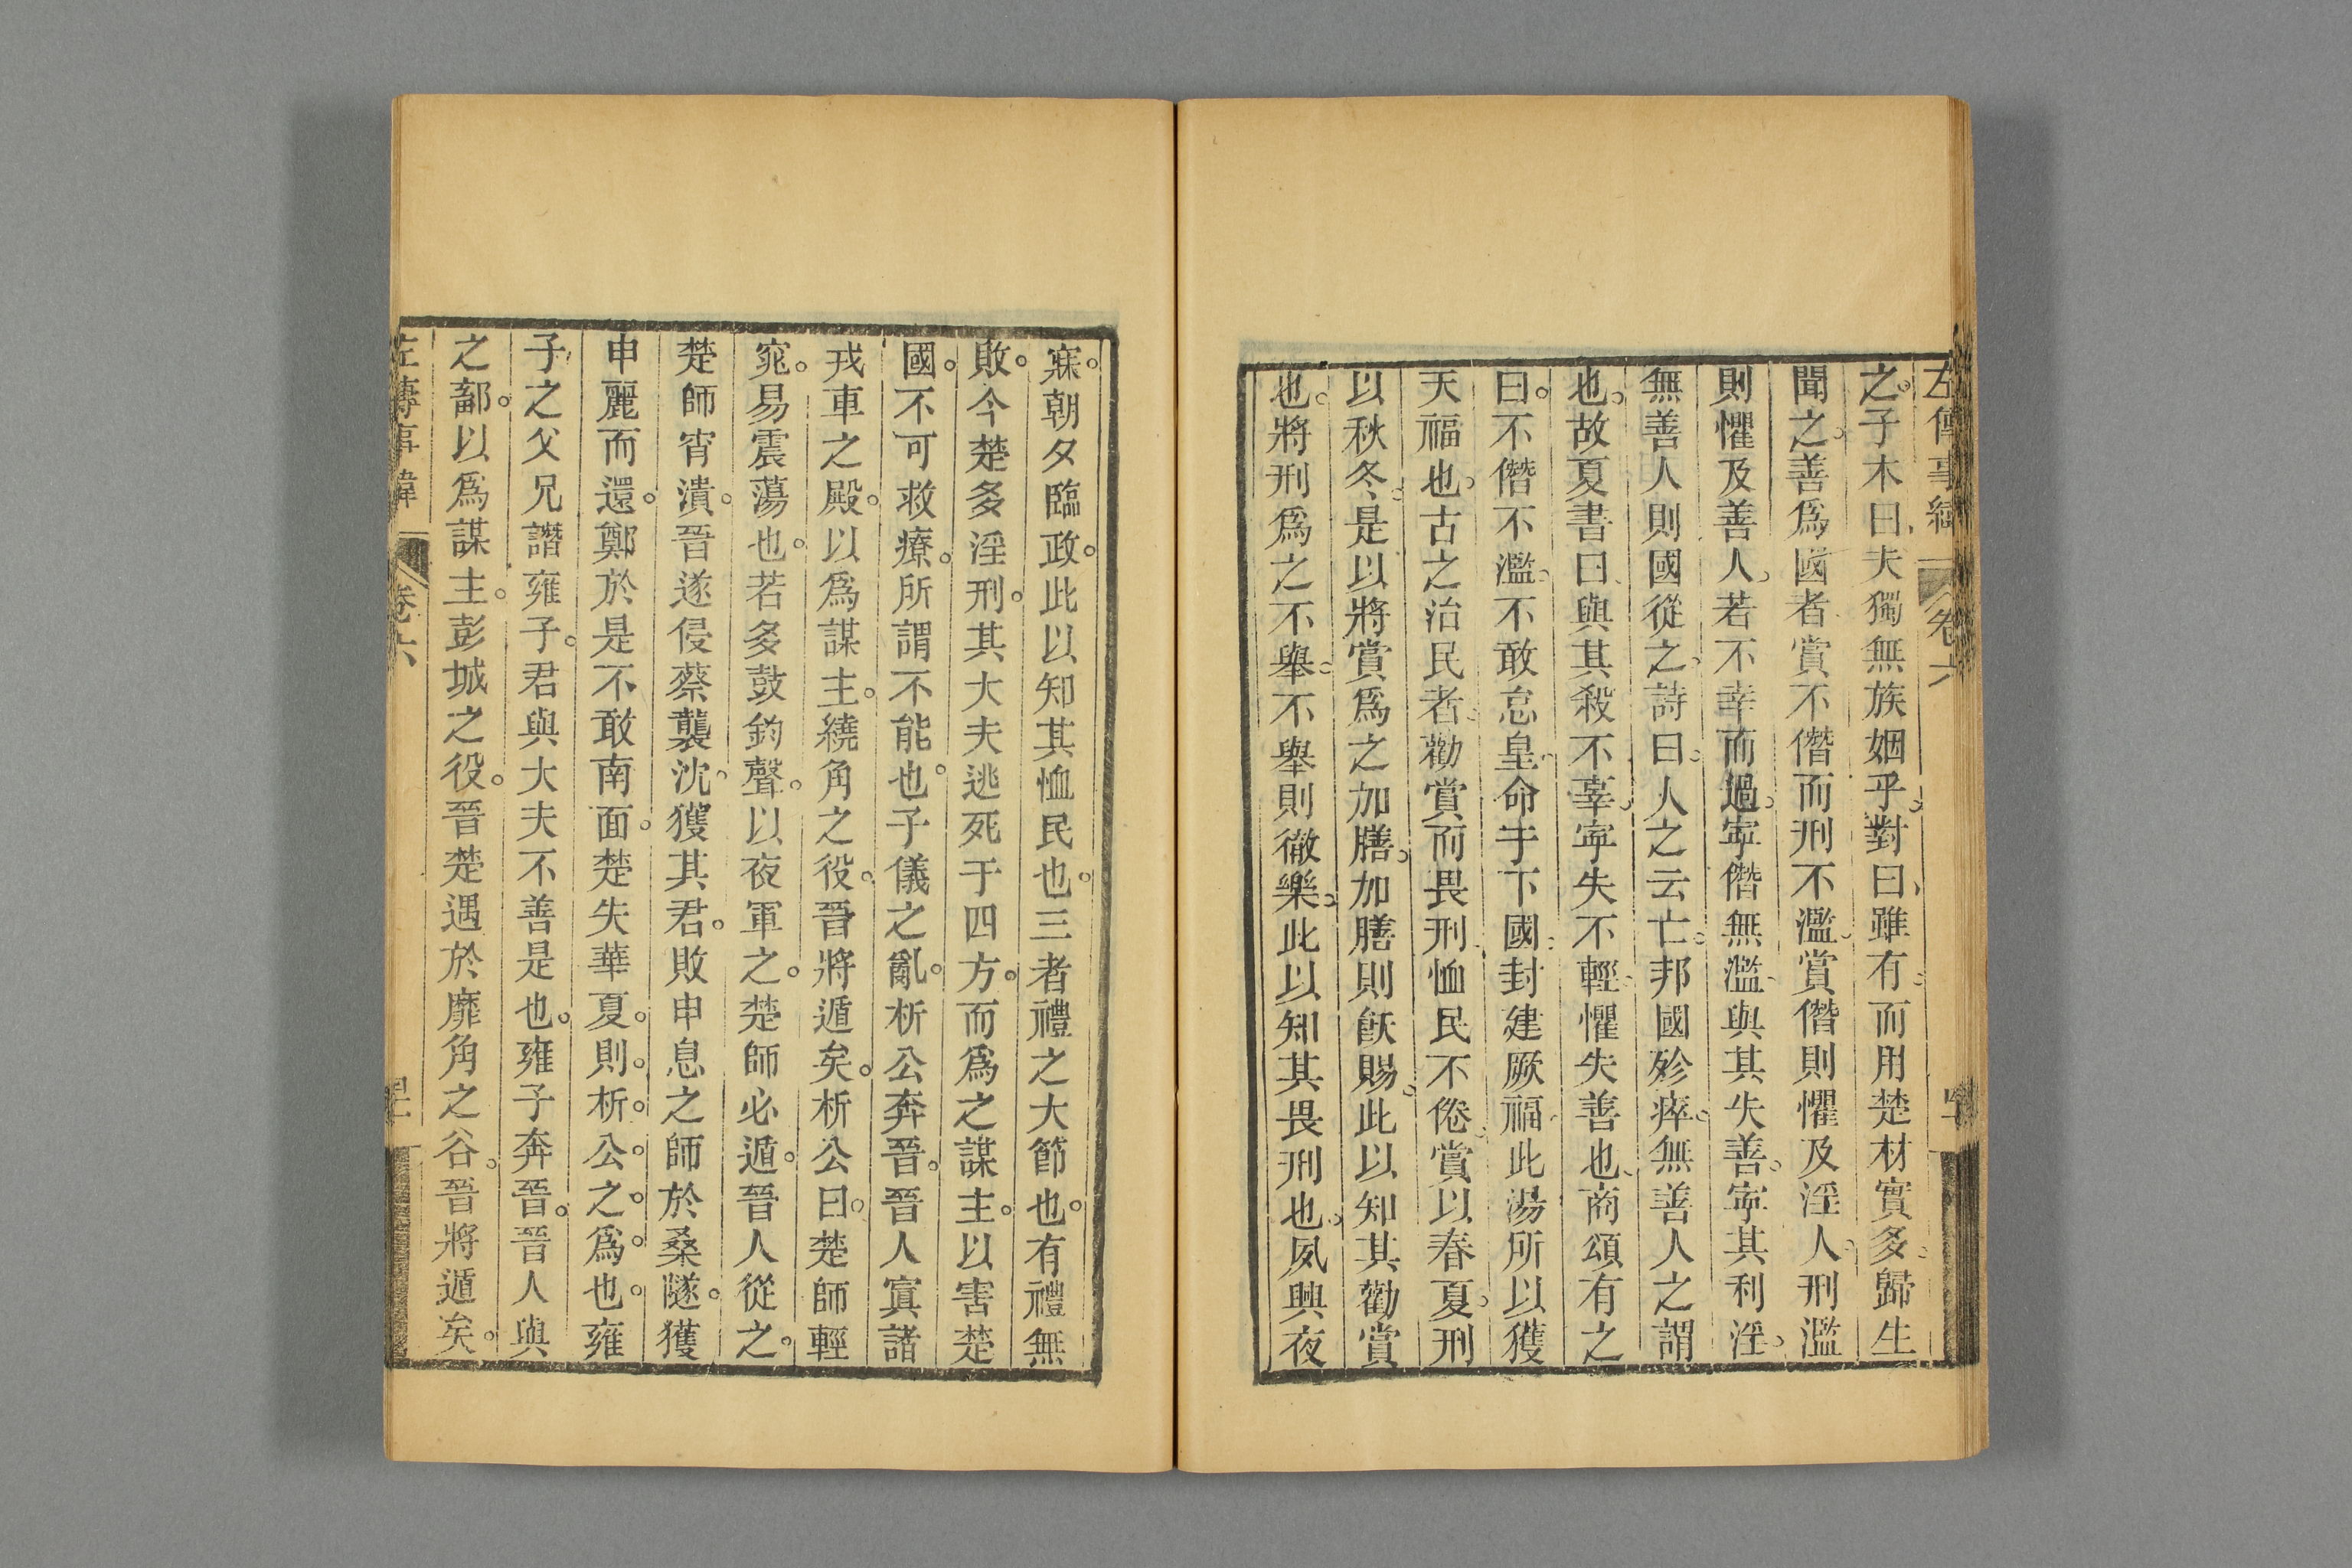 左傳事緯 卷六
之子木曰夫獨無族姻乎對曰雖有而用楚材實多歸生
聞之善爲國者賞不僭而刑不濫賞僭則懼及淫人刑濫
則懼及善人若不幸而過寜僭無濫與其失善寜其利淫
無善人則國從之詩曰人之云亡邦國殄瘁無善人之謂
也故夏書曰與其殺不辜寜失不輕懼失善也商頌有之
曰不僭不濫不敢怠皇命于下國封建厥福此湯所以獲
天福也古之治民者勸賞而畏刑恤民不倦賞以春夏刑
以秋冬是以將賞爲之加膳加膳則飫賜此以知其勸賞
也將刑爲之不舉不舉則徹樂此以知其畏刑也夙興夜
寐朝夕臨政此以知其恤民也三者禮之大節也有禮無
敗今楚多淫刑其大夫逃死于四方而爲之謀主以害楚
國不可救療所謂不能也子儀之亂析公奔晉晉人寘諸
戎車之殿以爲謀主繞角之役晉將遁矣析公曰楚師輕
窕易震蕩也若多鼓鈞聲以夜軍之楚師必遁晉人從之
楚師宵潰晉遂侵蔡襲沈獲其君敗申息之師於桑隧獲
申麗而還鄭於是不敢南面楚失華夏則析公之爲也雍
子之父兄譖雍子君與大夫不善是也雍子奔晉晉人與
之鄐以爲謀主彭城之役晉楚遇於靡角之谷晉將遁矣
左傳事緯 卷六